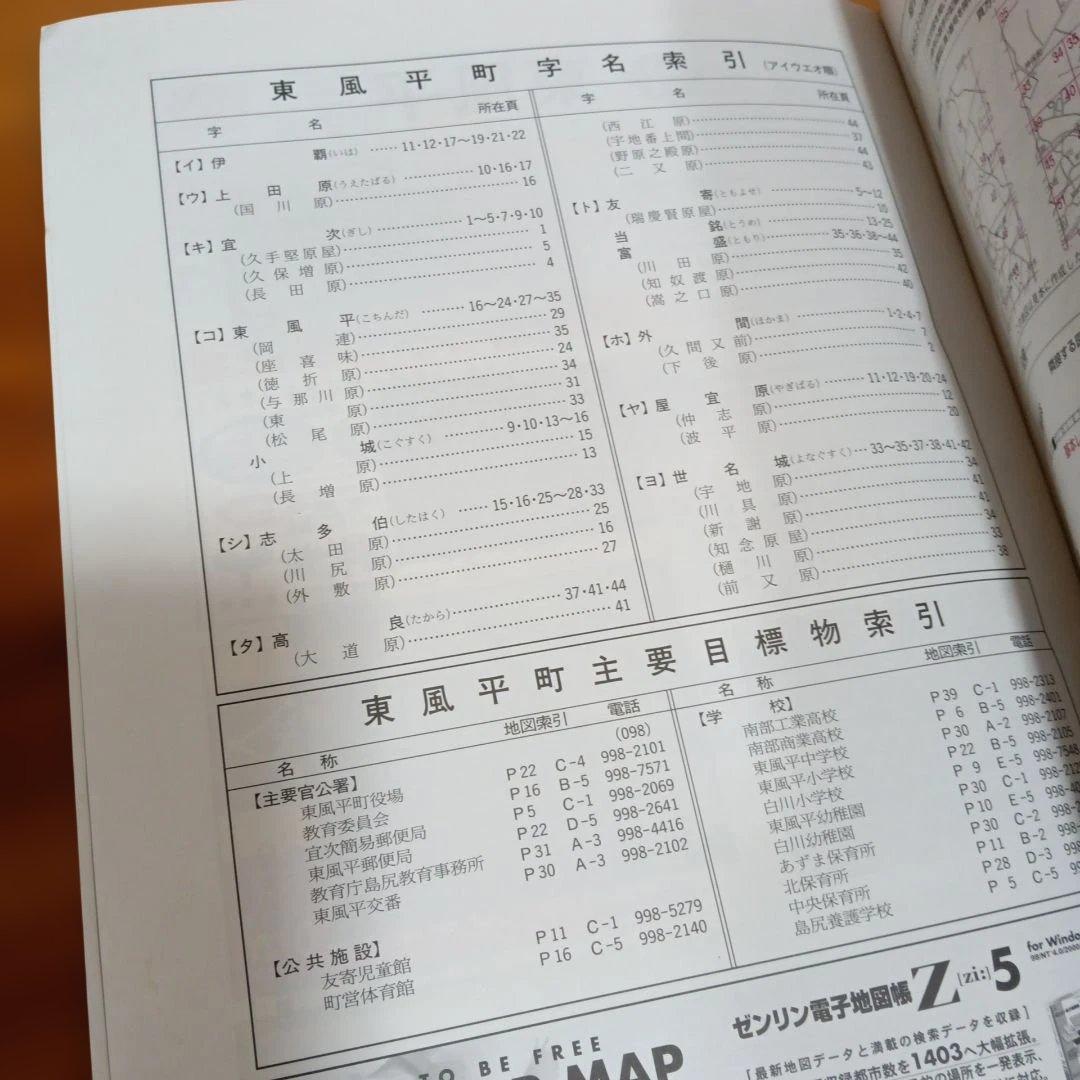 東風平町字名索引(アイウエオ順)
字 名 所在頁
【イ】伊 覇(いは)……11・12・17〜19・21・22
【ウ】上 田 原(うえたばる)……10・16・17
(国 川 原)……16
【キ】宜 次(ぎし)……1〜5・7・9・10
(久手堅原屋)……1
(久 保 増 原)……5
(長 田 原)……4
【コ】東 風 平(こちんだ)……16〜24・27〜35
(岡 連)……29
(座 喜 味)……35
(徳 折 原)……24
(与 那 川 原)……34
(東 原)……31
(松 尾 原)……33
小 城(こぐすく)……9・10・13〜16
(上 原)……15
(長 増 原)……13
【シ】志 多 伯(したはく)……15・16・25〜28・33
(太 田 原)……25
(川 尻 原)……16
(外 敷 原)……27
【タ】高 良(たから)……37・41・44
(大 道 原)……41
字 名 所在頁
(西 江 原)……44
(宇地番上間)……37
(野原之殿原)……44
(二 又 原)……43
【ト】友 寄(ともよせ)……5〜12
(瑞慶賢原屋)……10
当 銘(とうめ)……13・25
富 盛(ともり)……35・36・38〜44
(川 田 原)……35
(知 奴 渡 原)……42
(嵩 之 口 原)……40
【ホ】外 間(ほかま)……1・2・4・7
(久 間 又 前)……7
(下 後 原)……2
【ヤ】屋 宜 原(やぎばる)……11・12・19・20・24
(仲 志 原)……12
(波 平 原)……20
【ヨ】世 名 城(よなぐすく)……33〜35・37・38・41・42
(宇 地 原)……34
(川 具 原)……41
(新 謝 原)……41
(知 念 原 屋)……34
(樋 川 原)……33
(前 又 原)……38
東風平町主要目標物索引
名 称 地図索引 電話
(098)
【主要官公署】
東風平町役場 P22 C-4 998-2101
教育委員会 P16 B-5 998-7571
宜次簡易郵便局 P5 C-1 998-2069
東風平郵便局 P22 D-5 998-2641
教育庁島尻教育事務所 P31 A-3 998-4416
東風平交番 P30 A-3 998-2102
【公共施設】
友寄児童館 P11 C-1 998-5279
町営体育館 P16 C-5 998-2140
名 称 地図索引 電話
【学 校】
南部工業高校 P39 C-1 998-2313
南部商業高校 P 6 B-5 998-2401
東風平中学校 P30 A-2 998-2107
東風平小学校 P22 B-5 998-2105
白川小学校 P 9 E-5 998-7548
東風平幼稚園 P30 C-1 998-212
白川幼稚園 P10 E-5 998-40
あずま保育所 P30 C-2 998-2
北保育所 P11 B-2 998-
中央保育所 P28 D-3 998
島尻養護学校 P 5 C-5 99
TO BE FREE
MAP
ゼンリン電子地図帳Z[zi:]5
for Window
98/NT4.0/2000
[最新地図データと満載の検索データを収録]
収録都市数を1403へ大幅拡張。
の場所を一発表示、